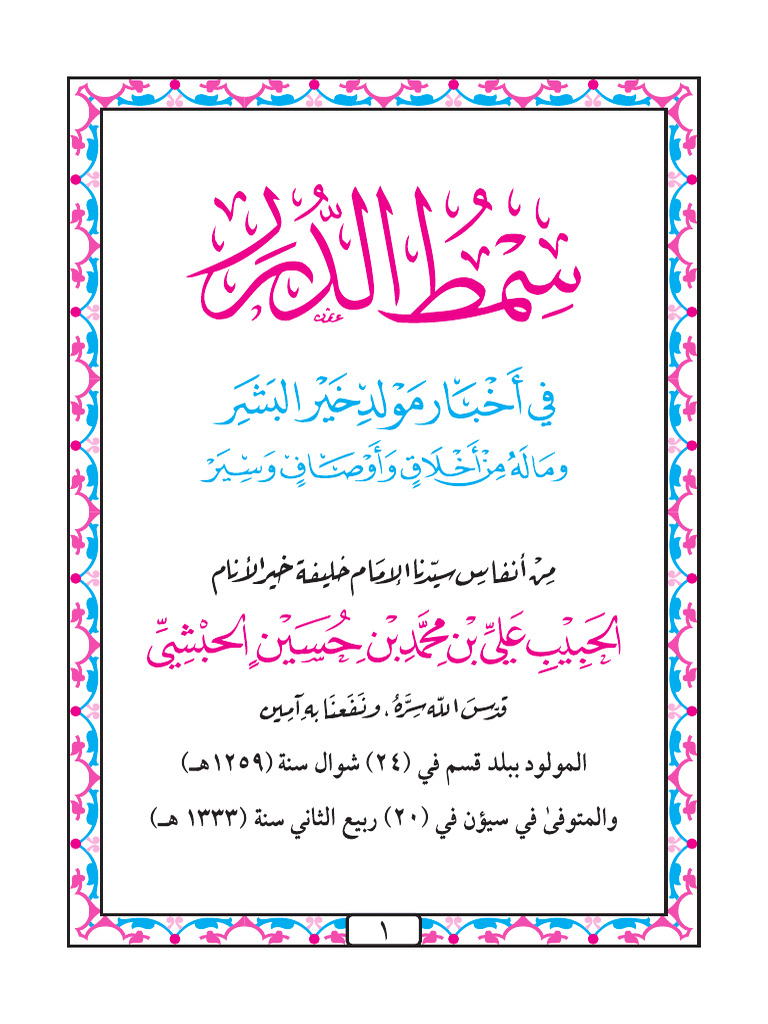 سِمْطُ الدُّرَر
فِي أَخْبَارِ مَوْلِدِ خَيْرِ الْبَشَرِ
وَمَا لَهُ مِنْ أَخْلَاقٍ وَأَوْصَافٍ وَسِيَرْ
مِنْ أنفاسِ سيّدنا الإمَام خليفة خير الأنام
الحَبِيْبِ عَلِيِّ بْنِ مُحَمَّدِ بْنِ حُسَيْنٍ الحَبْشِيِّ
قدّسَ اللّه سِرَّهُ، ونَفَعَنَا بِهِ آمِين
المولود ببلد قسم في (٢٤) شوال سنة (١٢٥٩هـ)
والمتوفىٰ في سيؤن في (٢٠) ربيع الثاني سنة (١٣٣٣ هـ)
١